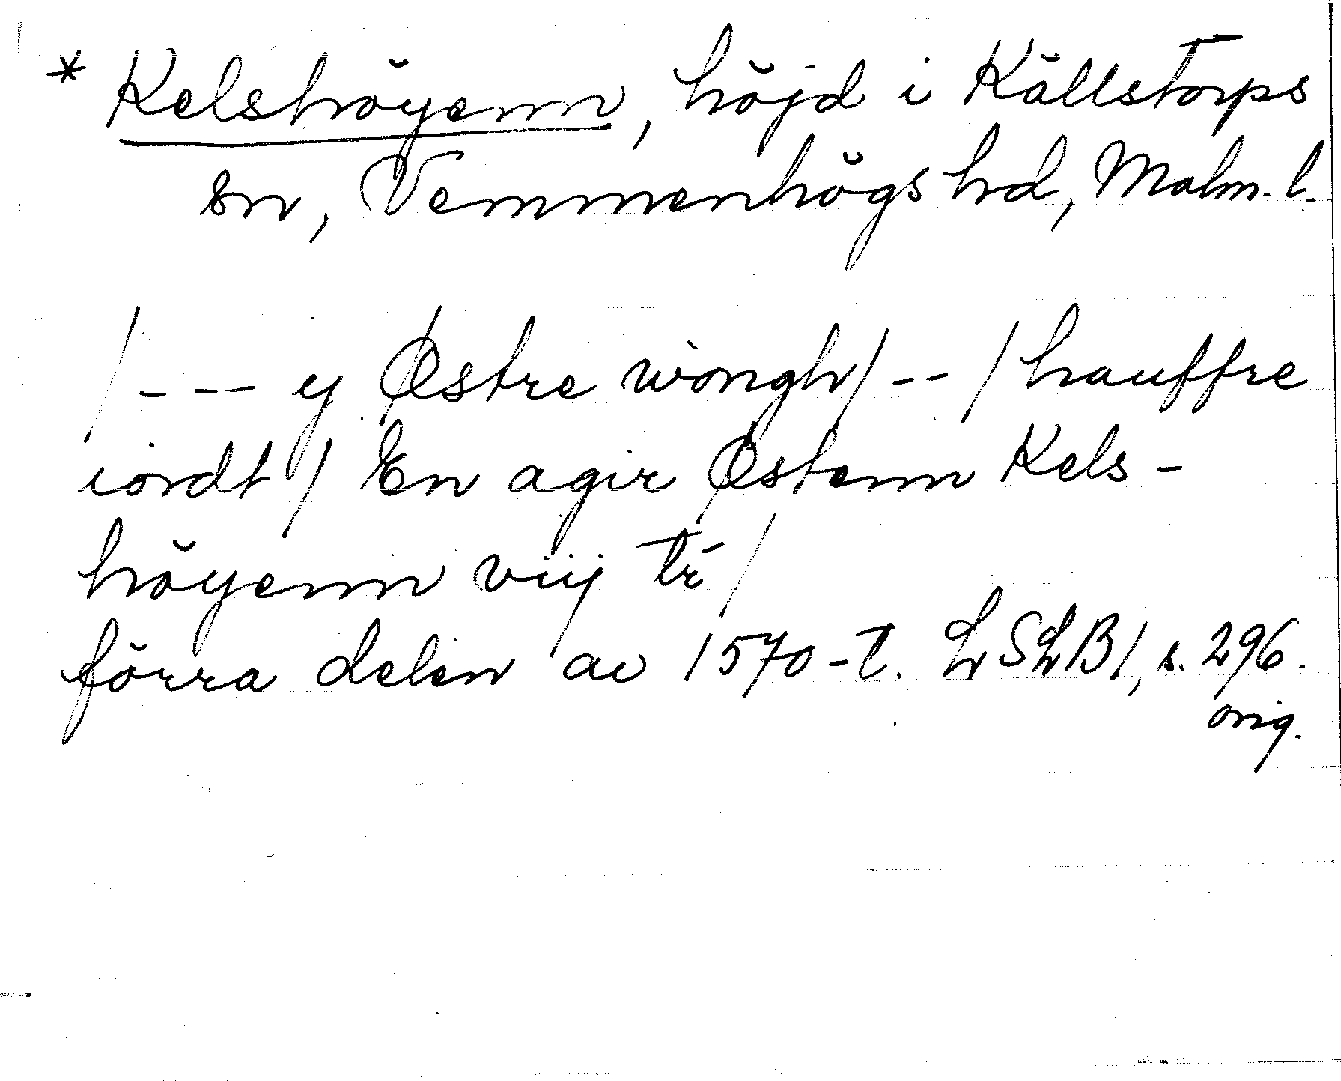 * Kelshöyenn, höjd i Källstorps
sn, Vemmenhögs hd, Malm. l.
/ --- y Østre wongh / -- / hauffre
iordt / En agir Østenn Kels-
höyenn viij tr /
förra delen av 1570-t. LSLB 1, s. 296.
orig.